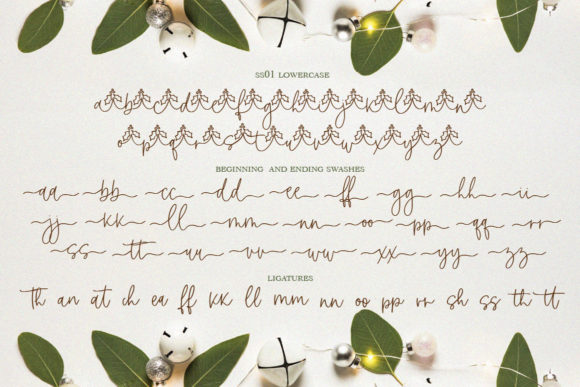 SS01 LOWERCASE
a b c d e f g h i j k l m n
o p q r s t u v w x y z
BEGINNING AND ENDING SWASHES
aa bb cc dd ee ff gg hh ii
jj kk ll mm nn oo pp qq rr
ss tt uu vv ww xx yy zz
LIGATURES
Th an at ch ea ff kk ll mm nn oo pp rr sh ss th tt